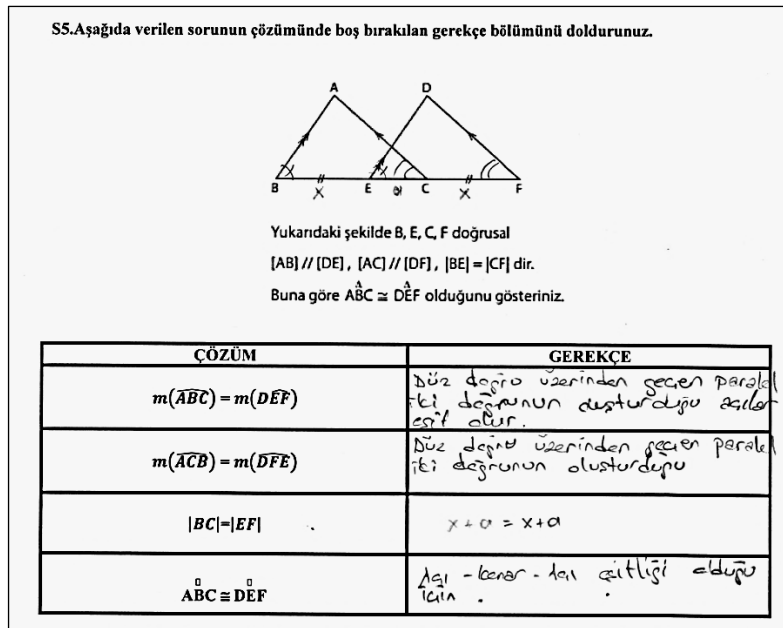 S5.Aşağıda verilen sorunun çözümünde boş bırakılan gerekçe bölümünü doldurunuz.
A D
B E C F
x a x
Yukarıdaki şekilde B, E, C, F doğrusal
[AB] // [DE] , [AC] // [DF] , |BE| = |CF| dir.
Buna göre ABC ≅ DEF olduğunu gösteriniz.
ÇÖZÜM GEREKÇE
m(ABC) = m(DEF)
Düz doğru üzerinden geçen paralel
iki doğrunun oluşturduğu açılar
eşit olur.
m(ACB) = m(DFE)
Düz doğru üzerinden geçen paralel
iki doğrunun oluşturduğu
|BC|=|EF| x + a = x + a
ABC ≅ DEF
Açı - kenar - Açı eşitliği olduğu
için .